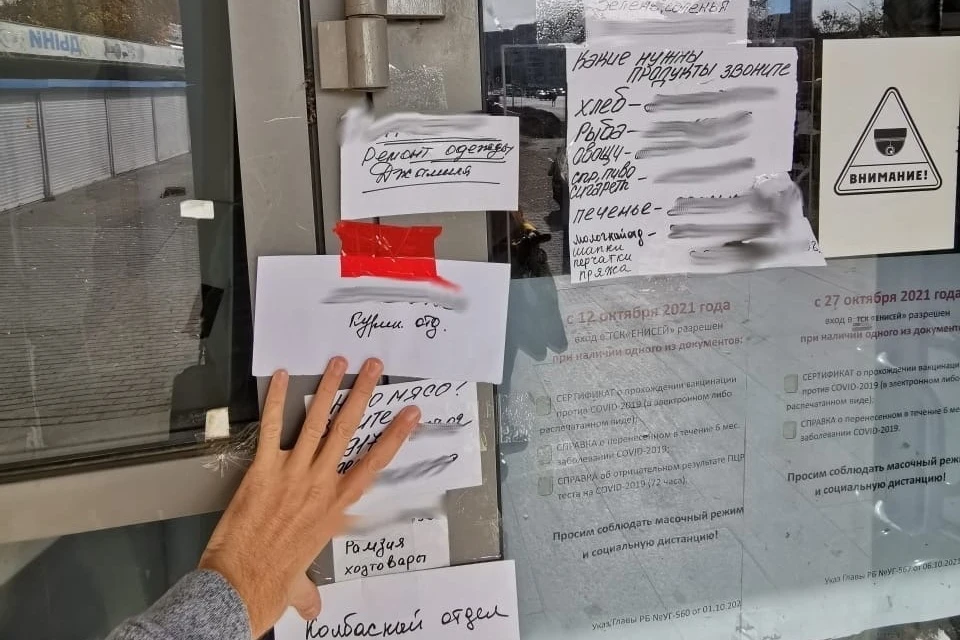 ЗЕЛЕНЬ, СОЛЕНЬЯ
Какие нужны
продукты звоните
хлеб-
Рыба-
овощи-
спр, пиво
сигареты
печенье-
молочный отд -
шапки
перчатки
пряжа
Ремонт одежды
Джамиля
Курин. отд.
мясо!
917
Рамзия
хозтовары
Колбасный отдел
ВНИМАНИЕ!
с 12 октября 2021 года
вход в ТСК «ЕНИСЕЙ» разрешен
при наличии одного из документов:
СЕРТИФИКАТ о прохождении вакцинации
против COVID-2019 (в электронном либо
распечатанном виде);
СПРАВКА о перенесенном в течение 6 мес.
заболевании COVID-2019;
СПРАВКА об отрицательном результате ПЦР
теста на COVID-2019 (72 часа).
Просим соблюдать масочный режим
и социальную дистанцию!
Указ Главы РБ №УГ-560 от 01.10.202
с 27 октября 2021 года
вход в ТСК «ЕНИСЕЙ» разрешен
при наличии одного из документов
СЕРТИФИКАТ о прохождении вакцинации
против COVID-2019 (в электронном либо
распечатанном виде);
СПРАВКА о перенесенном в течение 6 мес.
заболевании COVID-2019.
Просим соблюдать масочный режи
и социальную дистанцию!
Указ Главы РБ №УГ-567 от 06.10.2021